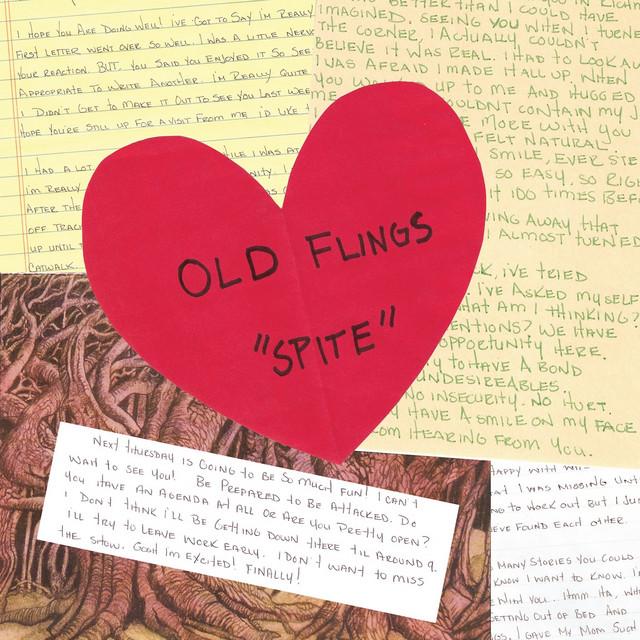 I HOPE YOU ARE DOING WELL! I'VE GOT TO SAY I'M REALLY
FIRST LETTER WENT OVER SO WELL. I WAS A LITTLE NERV
YOUR REACTION. BUT, YOU SAID YOU ENJOYED IT SO SEE
APPROPRIATE TO WRITE ANOTHER. I'M REALLY QUITE
I DIDN'T GET TO MAKE IT OUT TO SEE YOU LAST WEE
HOPE YOU'RE STILL UP FOR A VISIT FROM ME I'D LIKE
I HAD A LOT
WHILE I WAS AT
I'M REALLY
AFTER THE
OFF TRAC
UP UNTIL
CATWALK
BETTER THAN I COULD HAVE
IMAGINED. SEEING YOU WHEN I TURNE
THE CORNER, I ACTUALLY COULDN'T
BELIEVE IT WAS REAL. I HAD TO LOOK AW
I WAS AFRAID I MADE IT ALL UP. WHEN
YOU UP TO ME AND HUGGED
ME OULDN'T CONTAIN MY J
E MORE WITH YOU
FELT NATURAL
SMILE, EVER STE
SO EASY. SO RIG
IT 100 TIMES BEF
ING AWAY THAT
I ALMOST TURNED
CK, I'VE TRIED
I'VE ASKED MYSELF
HAT AM I THINKING?
ENTIONS? WE HAVE
OPPORTUNITY HERE.
Y TO HAVE A BOND
UNDESIREABLES.
NO INSECURITY. NO HURT.
Y HAVE A SMILE ON MY FACE
OM HEARING FROM YOU.
OLD FLINGS
"SPITE"
NEXT THURSDAY IS GOING TO BE SO MUCH FUN! I CAN'T
WAIT TO SEE YOU! BE PREPARED TO BE ATTACKED. DO
YOU HAVE AN AGENDA AT ALL OR ARE YOU PRETTY OPEN?
I DON'T THINK I'LL BE GETTING DOWN THERE TIL AROUND 9.
I'LL TRY TO LEAVE WORK EARLY. I DON'T WANT TO MISS
THE SHOW. GOSH I'M EXCITED! FINALLY!
HAPPY WITH
AT I WAS MISSING UNTI
NG TO WORK OUT BUT I JUS
EVE FOUND EACH OTHER.
MANY STORIES YOU COULD
KNOW I WANT TO KNOW. I'
YOU... HMM. HA, WH
ETTING OUT OF BED AND
GS. I GAVE MY MOM SUCH